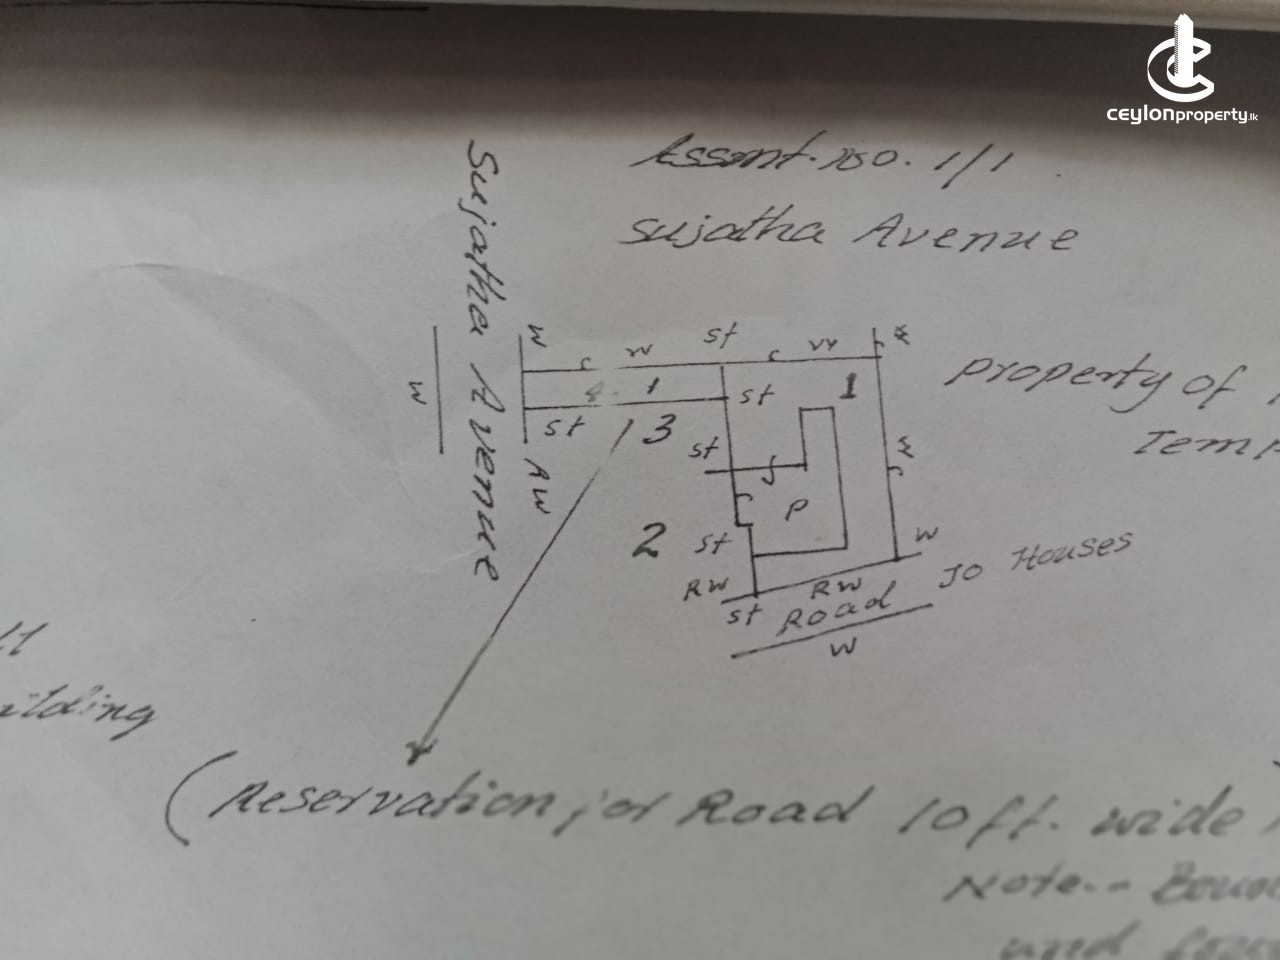 ceylonproperty.lk
Assmt. No. 1/1
Sujatha Avenue
Sujatha Avenue
W
W
W
st
c
W
c
W
W
1
st
1
st
3
st
W
RW
P
2
st
W
RW
RW
st
Road
To Houses
W
Property of
Temp
ilding
(Reservation for Road 10 ft. wide
Note-- Boun
and